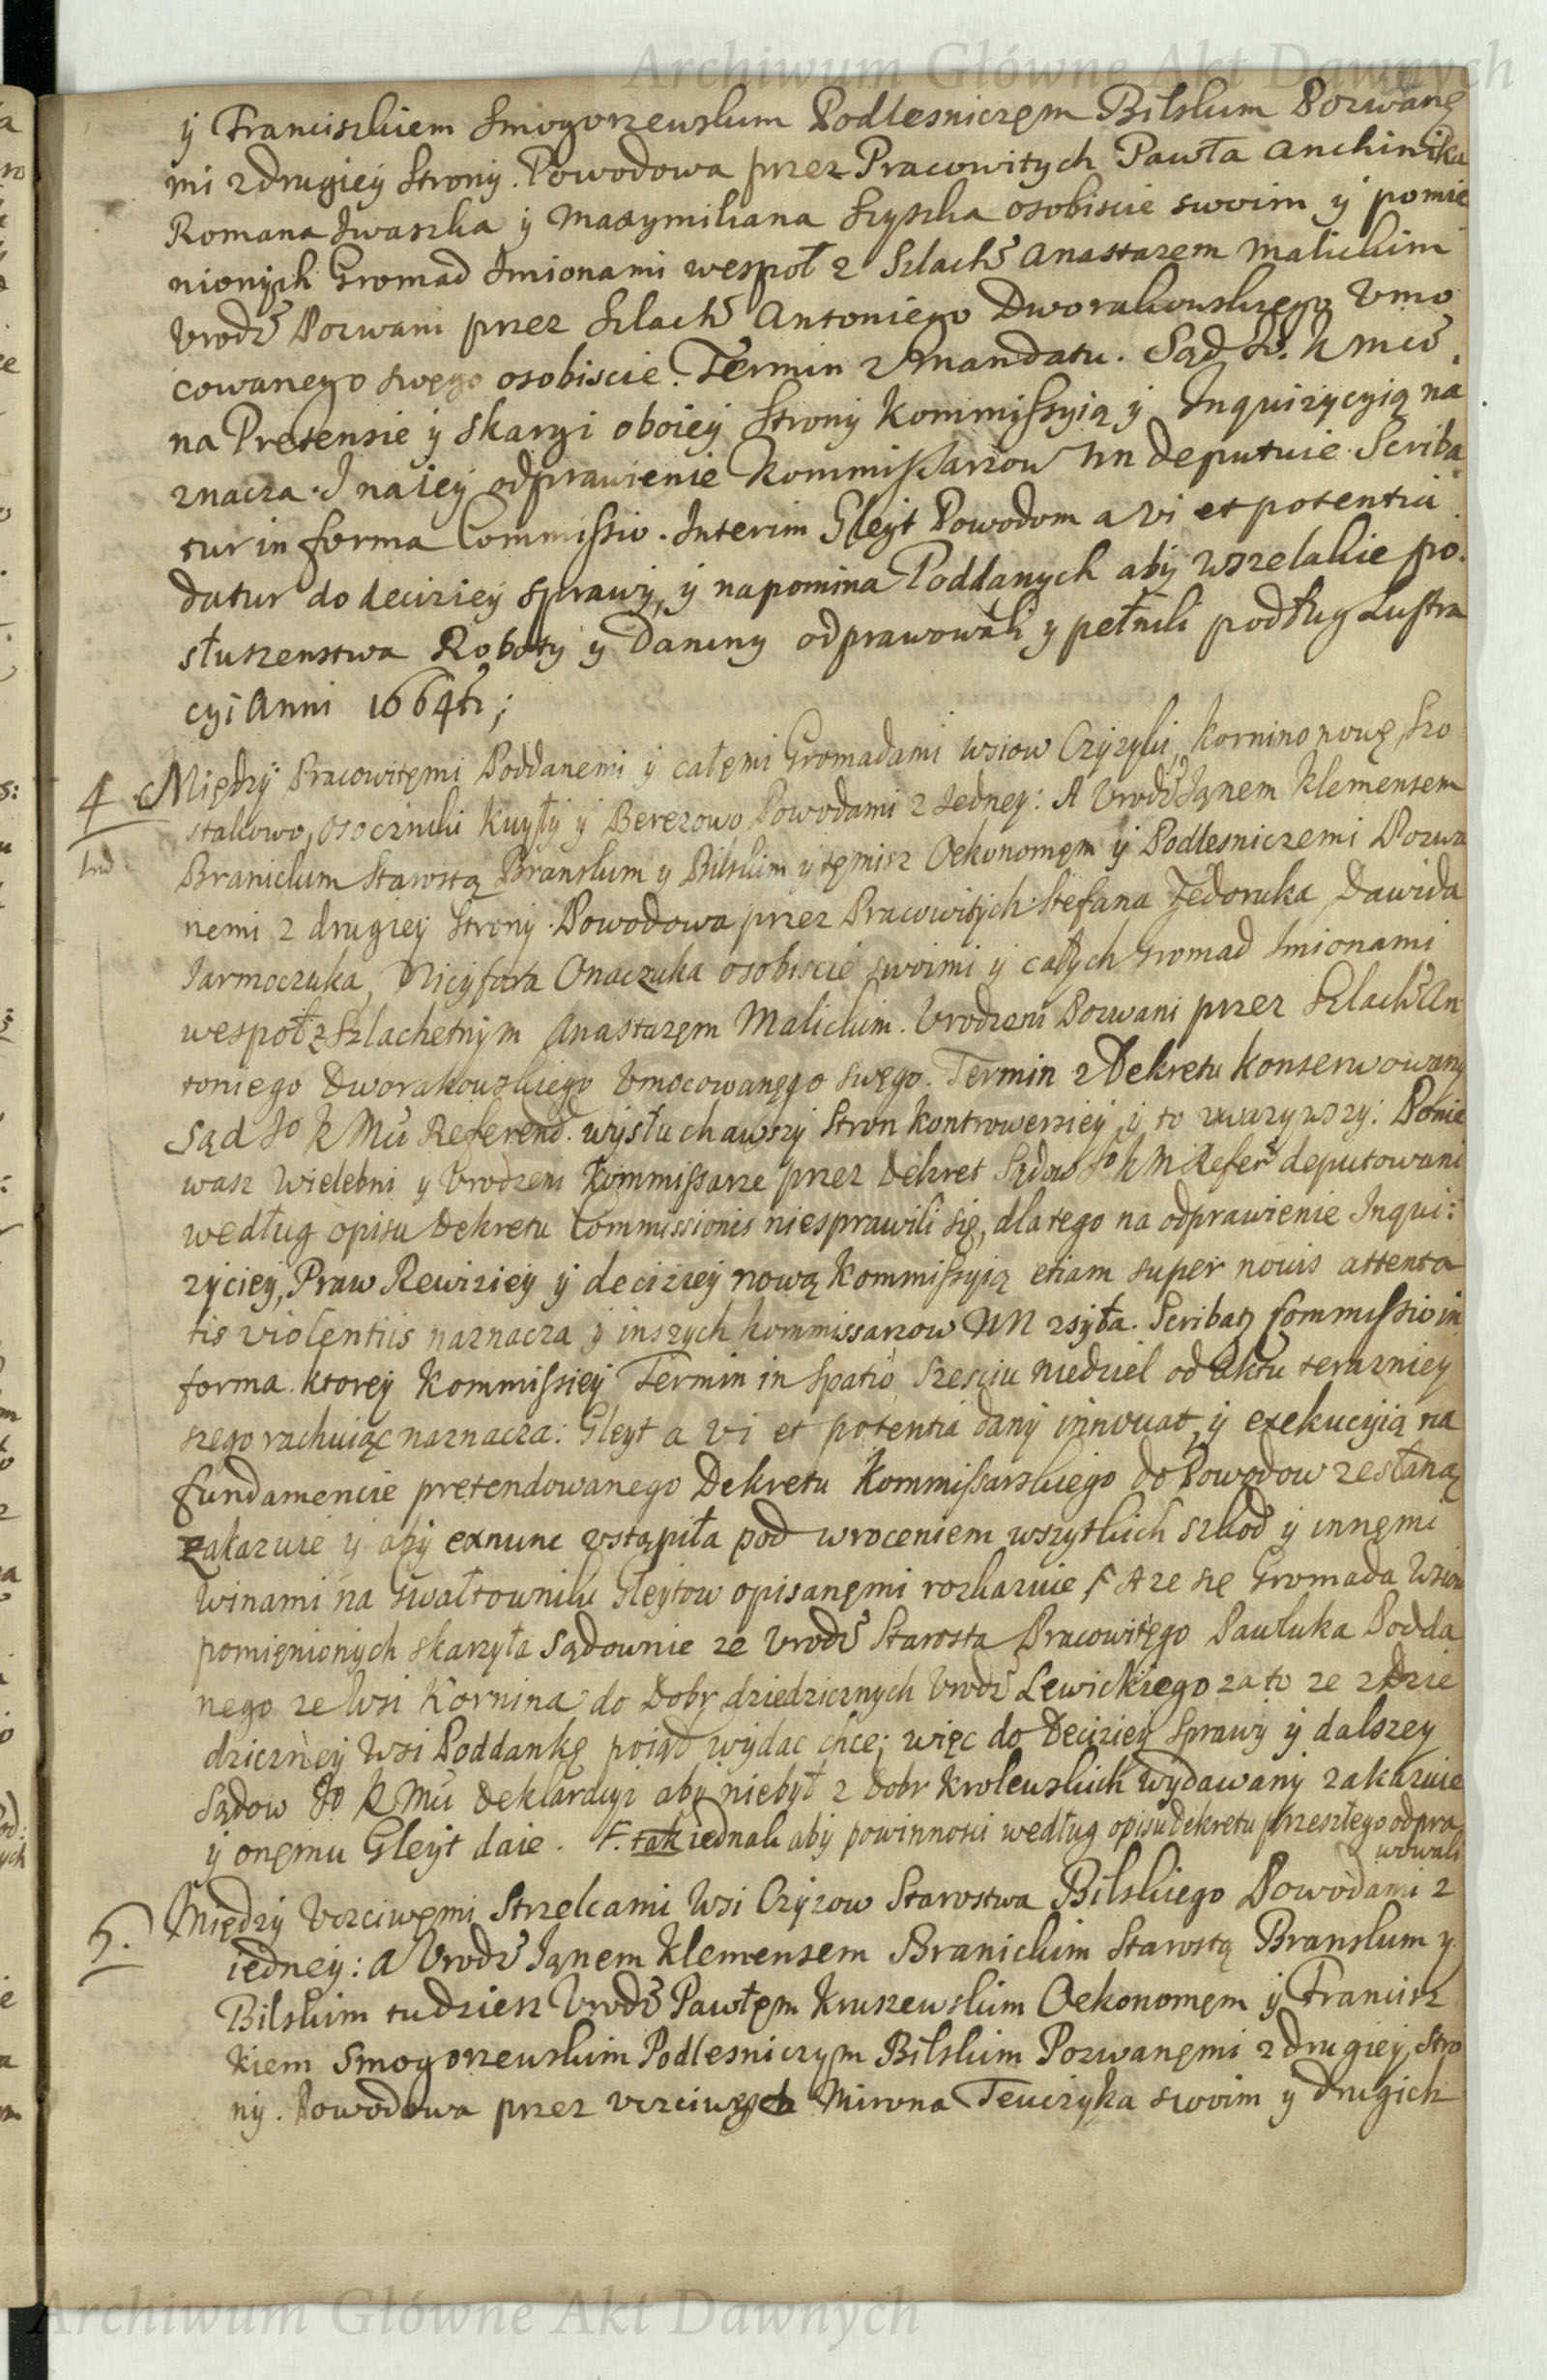 Archiwum Główne Akt Dawnych
y Franciszkiem Smogorzewskim Podlesniczęm Bilskim Pozwanę
mi z drugiey Strony. Powodowa przez Pracowitych Pawła Anchimika
Romana Iwaszka y Maxymiliana Szyszka osobiscie swoim y pomie
nionych Gromad Imionami wespoł z Szlach Anastazem Malickim
Vrodz Pozwani przez Szlach Antoniego Dworakowskiego Vmo
cowanego swęgo osobiscie. Termin z Mandatu. Sąd Jo. K Mci
na Pretensie y skargi oboiey Strony Kommissyią y Inquizycyią na
znacza. I na iey odprawienie Kommissarzow NN deputuie. Scriba
tur in forma Commissio. Interim Gleyt Powodom a vi et potentia
datur do deciziey sprawy, y napomina Poddanych aby wszelakie po
słuszenstwa Roboty y Daniny odprawowali y pełnili podług Lustra
cyi Anni 1664ti;
4 Między Pracowitęmi Poddanemi y całęmi Gromadami wsiow Czyzyki, Kornino nowę, Szo
stakowo, Osoczniki Kuyły y Berezowo Powodami z Iedney: A Vrodz Iąnem Klemensem
Ind.
Branickim Starostą Branskim y Bilskim y tęmisz Oekonomęm y Podlesniczemi Pozwa
nemi z drugiey Strony. Powodowa przez Pracowitych Stefana Fedoruka Dawida
Iarmoczuka, Nicyfora Onaczuka osobiscie swoimi y całych Gromad Imionami
wespoł z Szlachetnym Anastazęm Malickim. Vrodzeni Pozwani przez Szlach An
toniego Dworakowskiego Vmocowanęgo swęgo. Termin z Dekretu konserwowany
Sąd Jo K Mci Referend. wysłuchawszy Stron kontrowersiey y to uwazywszy: Ponie
wasz Wielebni y Vrodzeni Kommissarze przez Dekret Sądow Jo K M Refer deputowani
według opisu Dekretu Commissionis niesprawili się, dlatego na odprawienie Inqui:
zyciey, Praw Rewiziey y deciziey nową Kommissyią etiam super novis attenta
tis violentiis naznacza y inszych kommissarzow NN zsyła. Scribatz Commissio in
forma. ktorey Kommissiey Termin in spatio szesciu niedziel od Aktu terazniey
szego rachuiąc naznacza: Gleyt a vi et potentia dany innouat, y exekucyią na
fundamencie prętendowanego Dekretu Kommissarskiego do Powodow zesłaną
zakazuie y aby exnunc ustąpiła pod wroceniem wszytkich szkod y innęmi
winami na Gwałtowniki Gleytow opisanęmi rozkazuie F A ze się Gromada Wsiow
pomięnionych skarzyła sądownie ze Vrodz Starosta Pracowitęgo Pawluka Podda
nego ze Wsi Kornina do Dobr dziedzicznych Vrodz Lewickiego za to ze z Dzie
dziczney Wsi Poddankę poiął wydac chce; więc do Deciziey Sprawy y dalszey
Sądow Jo K Mci Deklaracyi aby niebył z Dobr Krolewskich wydawany zakazuie
y onęmu Gleyt daie. F. tak iednak aby powinnosci według opisu Dekretu przeszłego odpra
wowali
5. Między Vczciwęmi Strzelcami Wsi Czyzow Starostwa Bilskiego Powodami z
iedney: A Vrodz Iąnem Klemensem Branickim Starostą Branskim y
Bilskim tudziesz Vrodz Pawłęm Kruszewskim Oekonomęm y Francisz
kiem Smogorzewskim Podlesniczym Bilskim Pozwanęmi z drugiey Stro
ny. Powodowa przez vczciwych Mirona Teuczyka swoim y drugich
Archiwum Główne Akt Dawnych